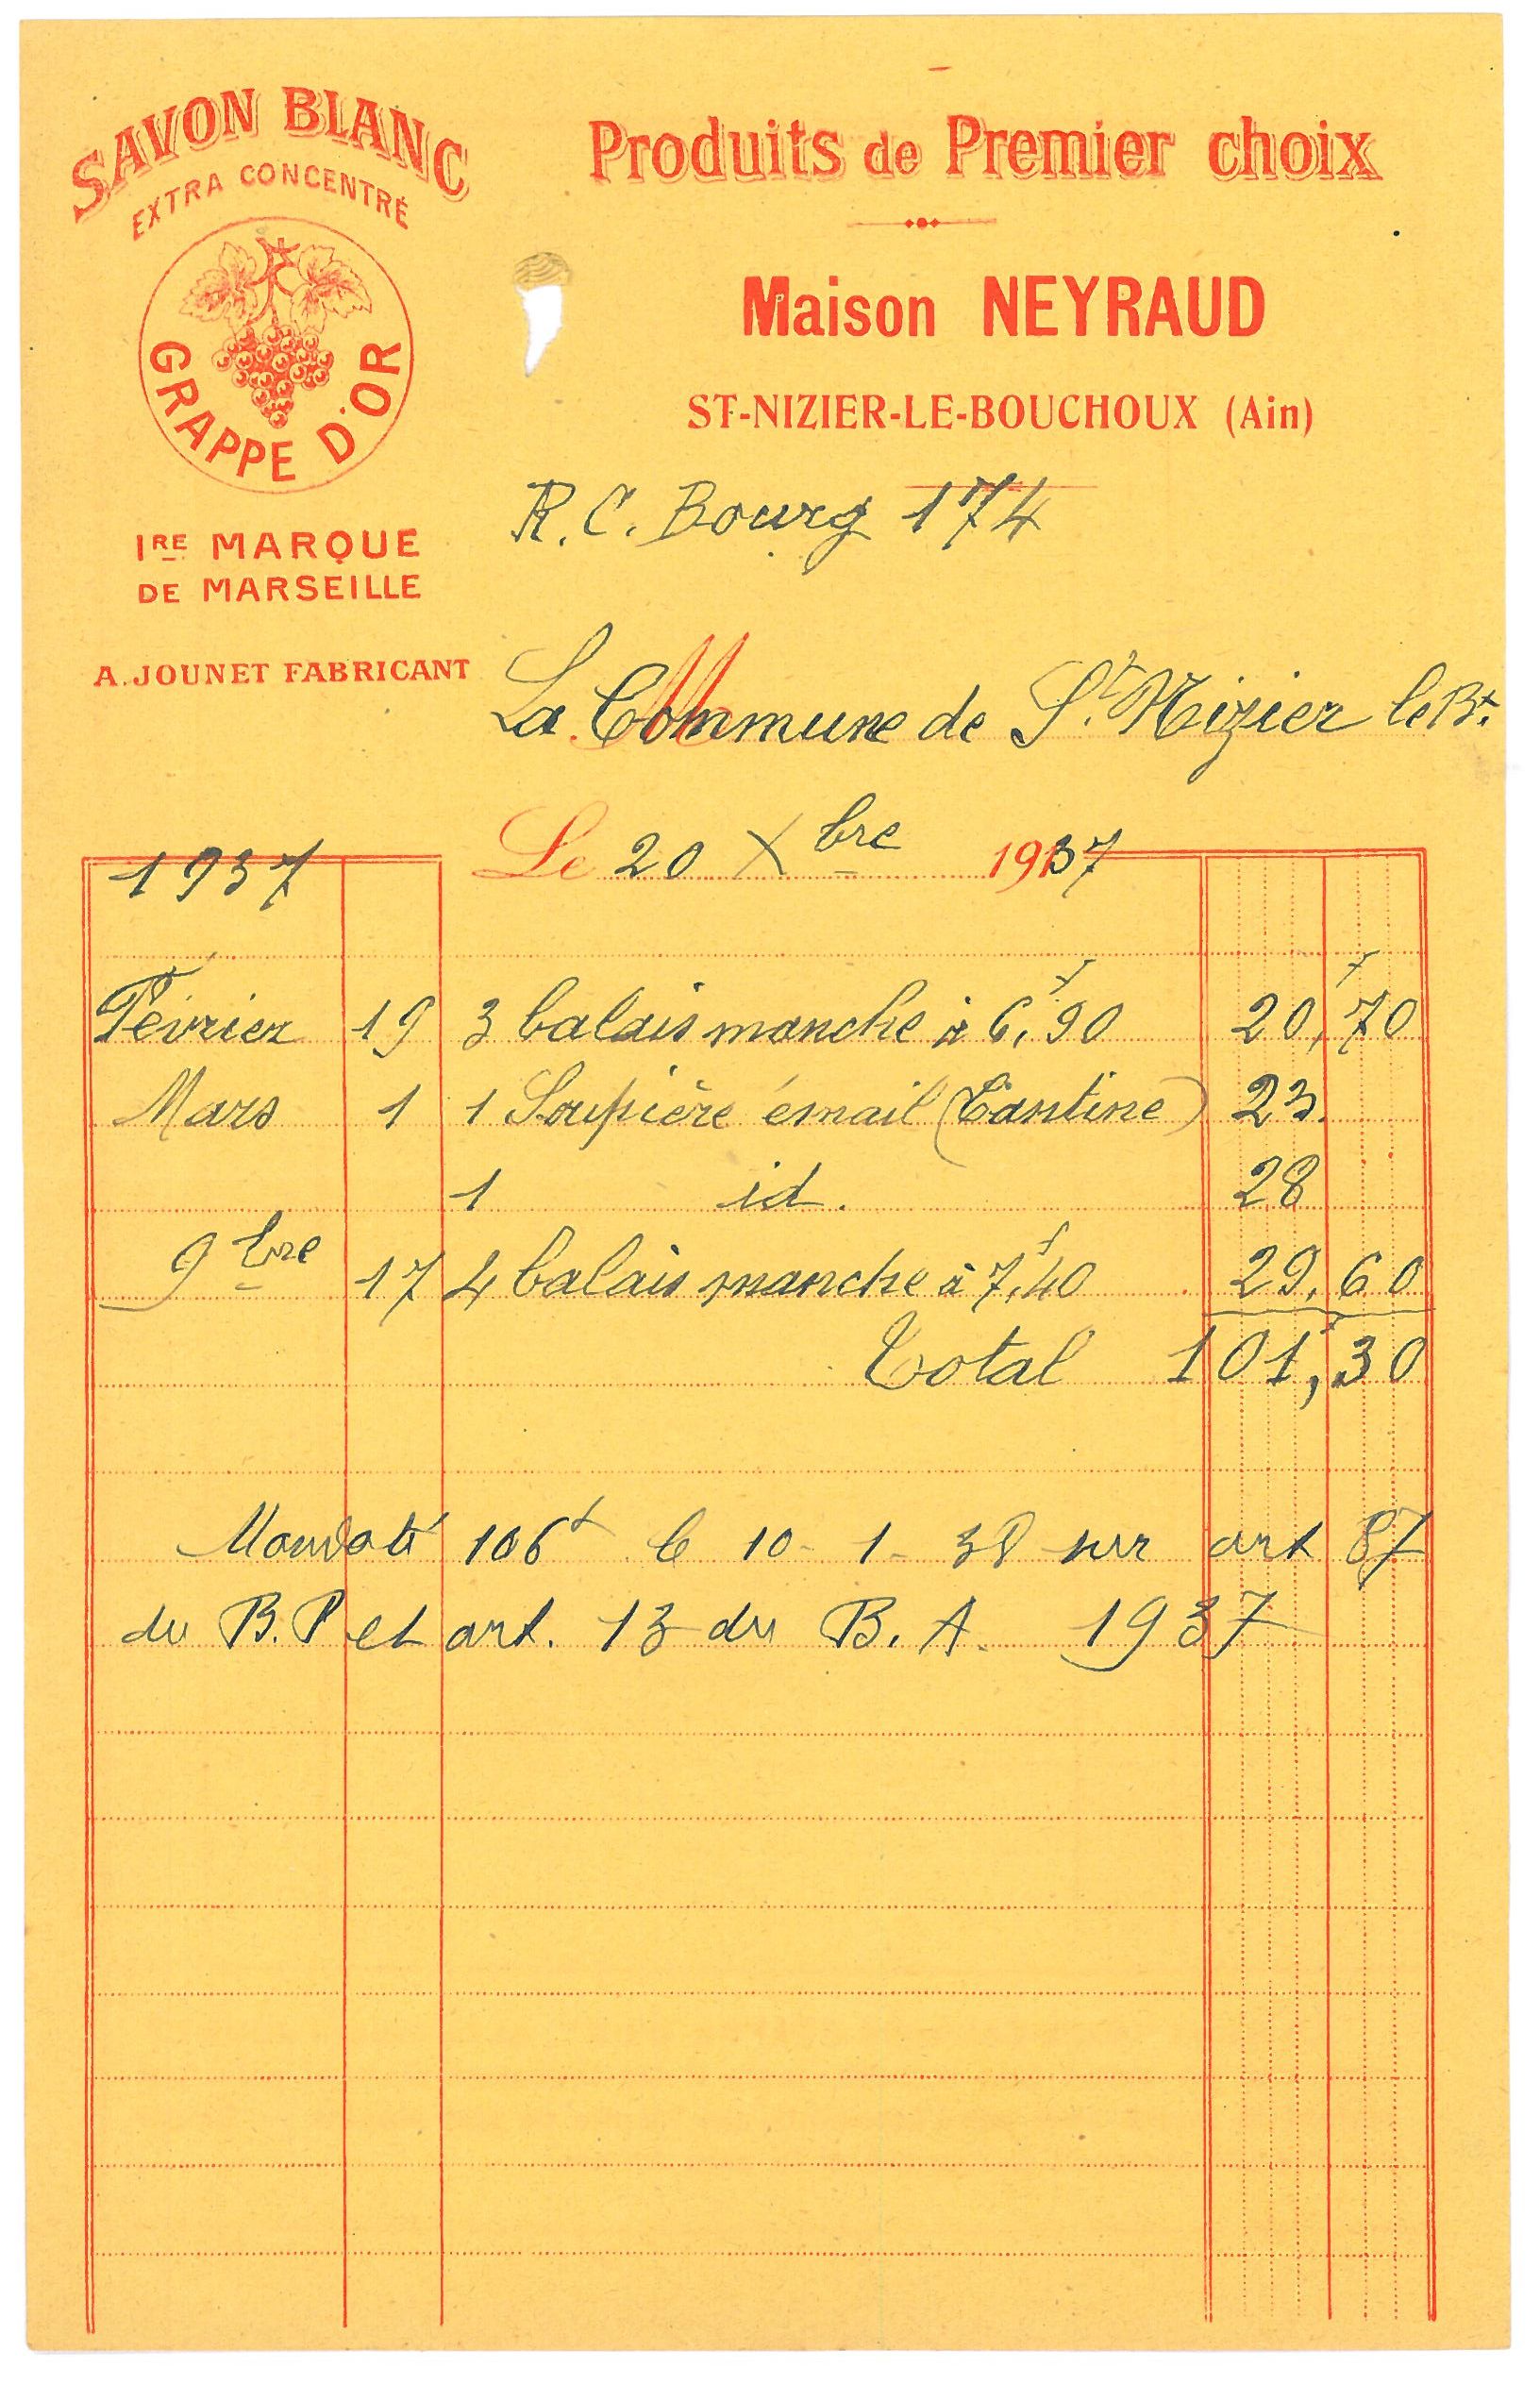 SAVON BLANC
EXTRA CONCENTRÉ
GRAPPE D'OR
1RE MARQUE
DE MARSEILLE
A. JOUNET FABRICANT
Produits de Premier choix
Maison NEYRAUD
ST-NIZIER-LE-BOUCHOUX (Ain)
R.C. Bourg 174
M
La Commune de St. Nizier le Bx.
Le 20 Xbre 1937
1937
Février 19 3 balais manche à 6,f90 20,f70
Mars 1 1 Soupière émail (Cantine) 23.
1 id. 28
9bre 17 4 balais manche à 7,f40 29,60
Total 101,30
Mandaté 106f le 10-1-38 sur art 87
du B.P et art. 13 du B.A. 1937